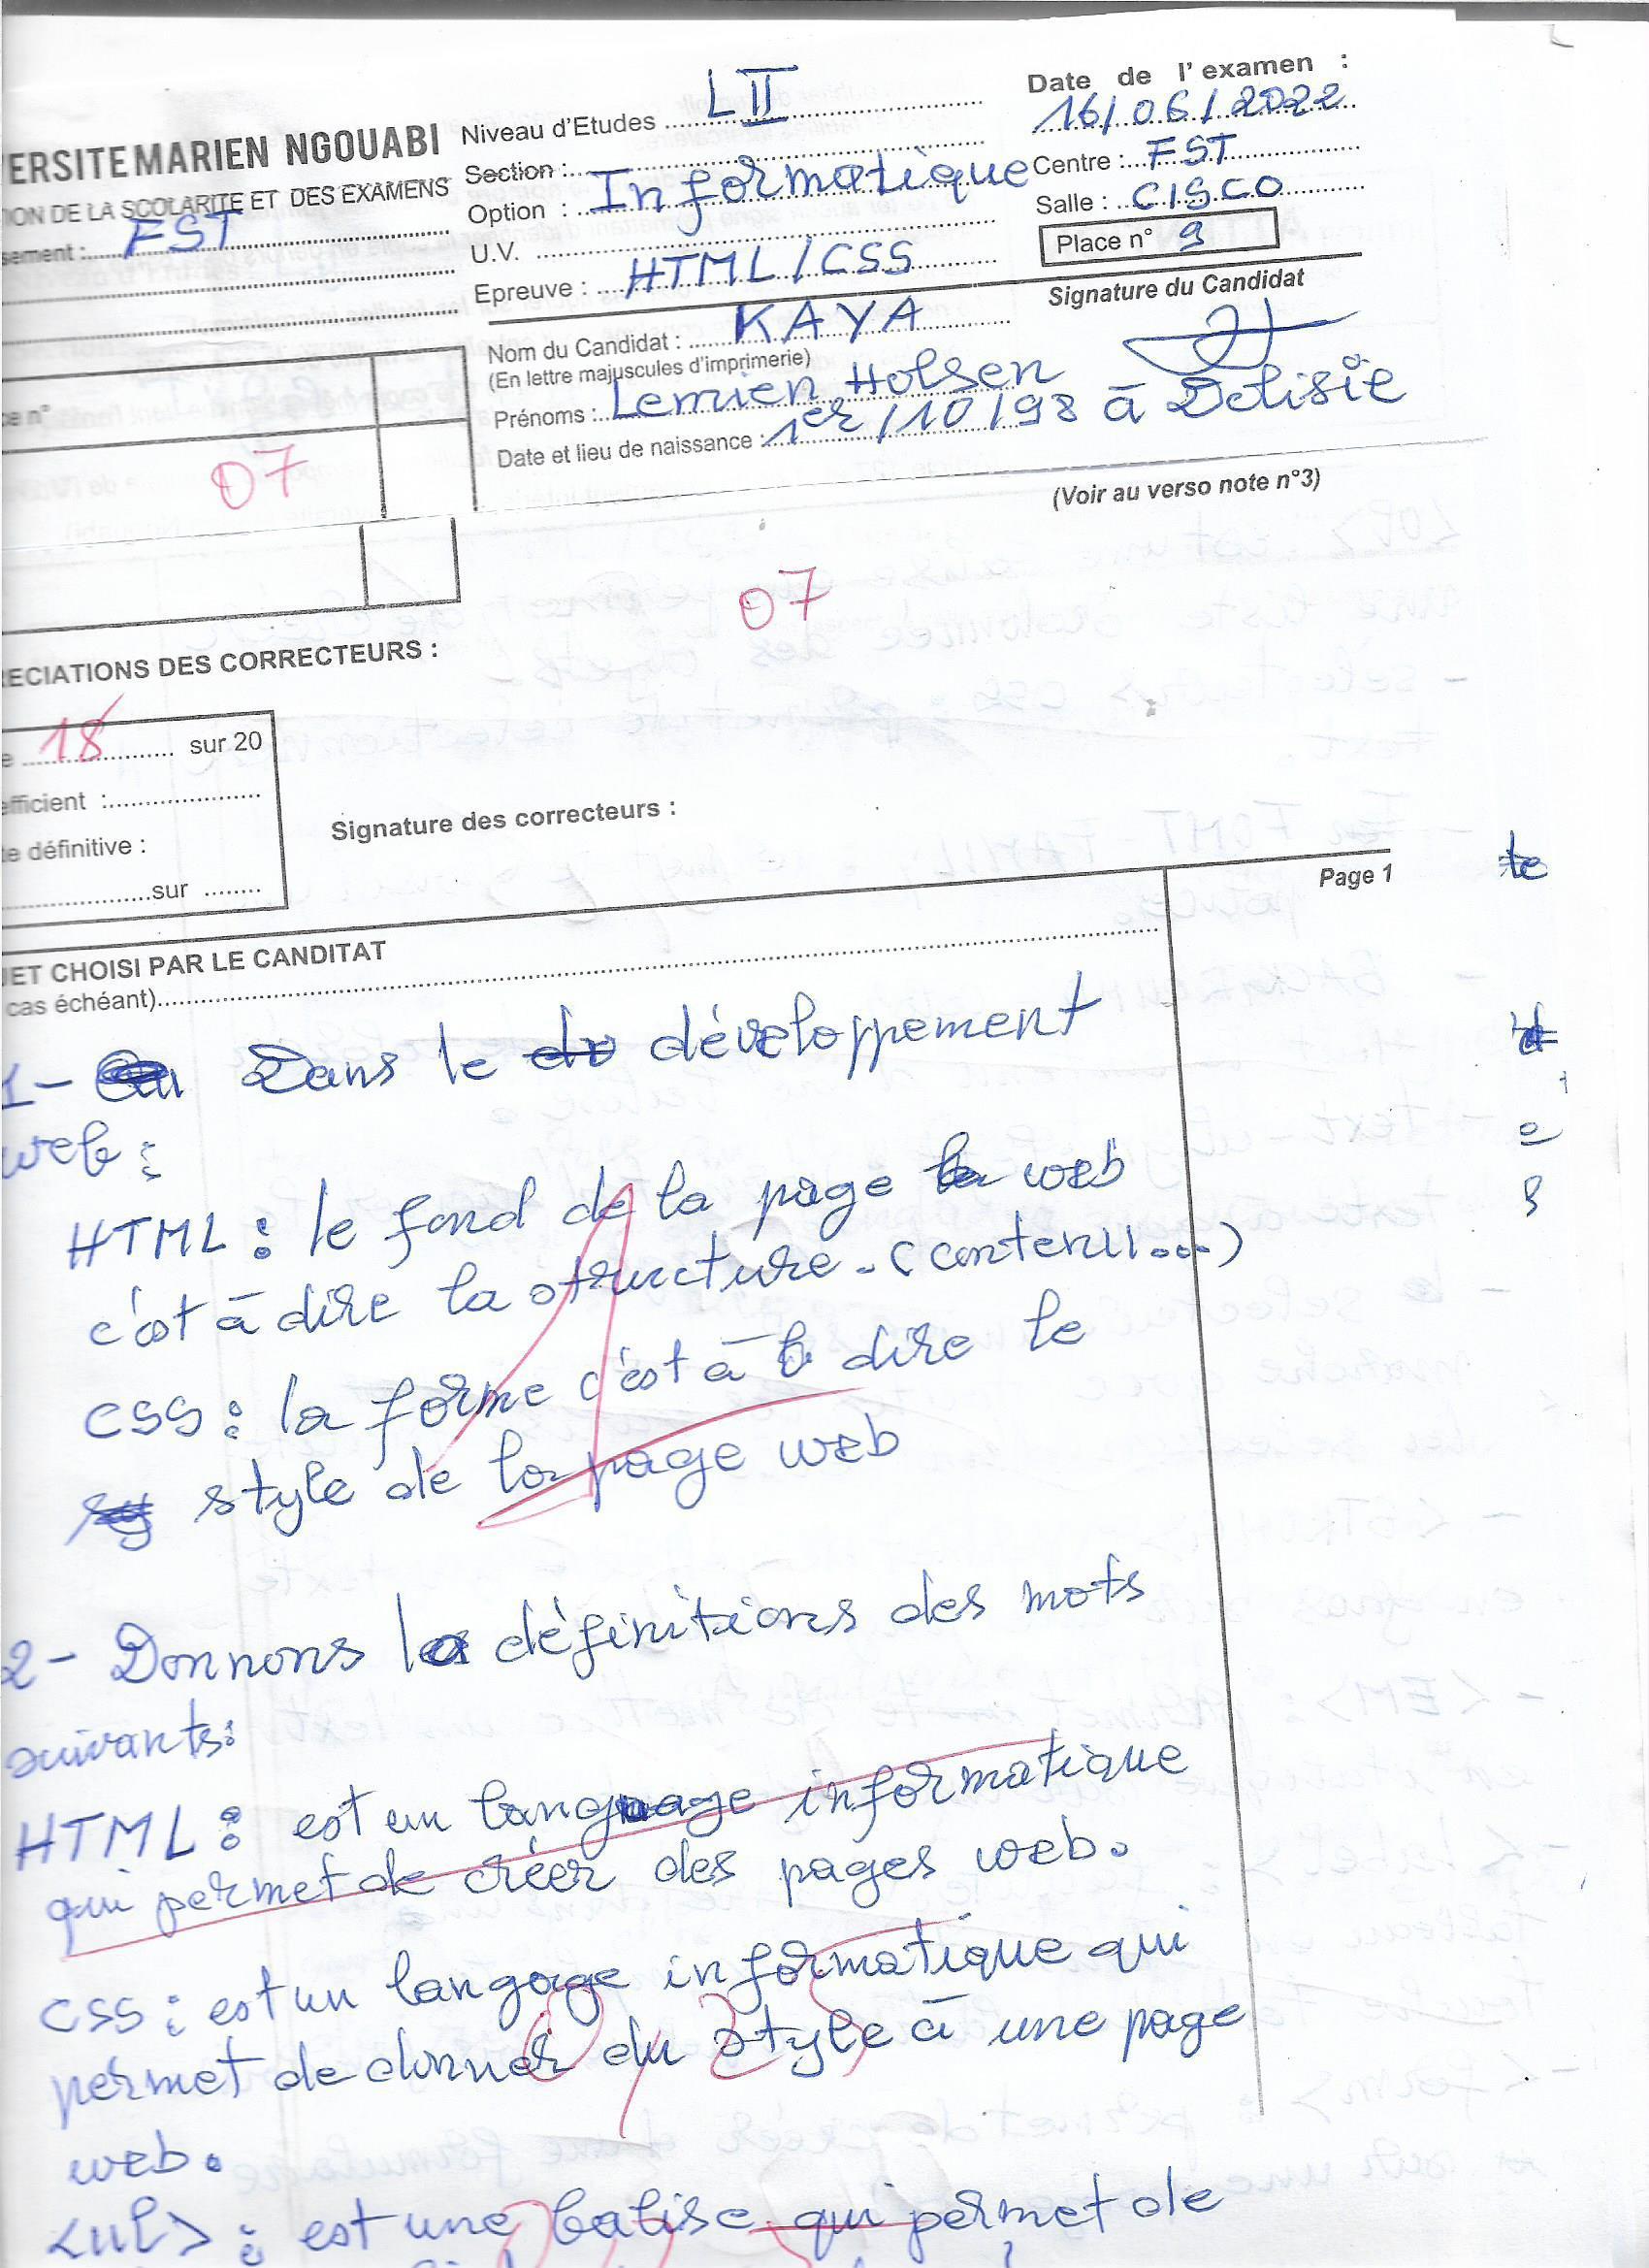 ERSITE MARIEN NGOUABI
ION DE LA SCOLARITE ET DES EXAMENS
sement : FST
Niveau d'Etudes LII
Section :
Option : Informatique
U.V.
Epreuve : HTML/CSS
Date de l'examen :
16/06/2022
Centre : FST
Salle : CISCO
Place n° 9
Signature du Candidat
Nom du Candidat : KAYA
(En lettre majuscules d'imprimerie)
Prénoms : Lemien Holsen
Date et lieu de naissance : 1er/10/98 à Dolisie
(Voir au verso note n°3)
ce n°
07
07
RECIATIONS DES CORRECTEURS :
e 18 sur 20
efficient :
te définitive :
sur
Signature des correcteurs :
Page 1
JET CHOISI PAR LE CANDITAT
cas échéant)
1- Dans le développement
web :
HTML : le fond de la page web
c'est à dire la structure - (contenu...)
CSS : la forme c'est à dire le
style de la page web
2- Donnons les définitions des mots
suivants :
HTML : est un language informatique
qui permet de créer des pages web.
CSS : est un langage informatique qui
permet de donner du style à une page
web.
<ul> : est une balise qui permet de